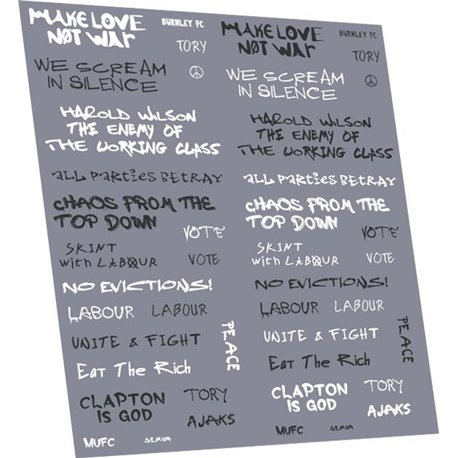 MAKE LOVE
NOT WAR
BURNLEY FC
TORY
WE SCREAM
IN SILENCE
HAROLD WILSON
THE ENEMY OF
THE WORKING CLASS
ALL PARTIES BETRAY
CHAOS FROM THE
TOP DOWN
VOTE
SKINT
with LABOUR
VOTE
NO EVICTIONS!
LABOUR
LABOUR
UNITE & FIGHT
PEACE
EAT THE RICH
CLAPTON
IS GOD
TORY
AJAKS
MUFC
SERVA
MAKE LOVE
NØT WAR
BURNLEY FC
TORY
WE SCREAM
IN SILENCE
HAROLD WILSON
THE ENEMY OF
THE WORKING CLASS
ALL PARTIES BETRAY
CHAOS FROM THE
TOP DOWN
VOTE
SKINT
with LABOUR
VOTE
NO EVICTIONS!
LABOUR
LABOUR
UNITE & FIGHT
PEACE
EAT THE RICH
CLAPTON
IS GOD
TORY
AJAKS
MUFC
SERVA